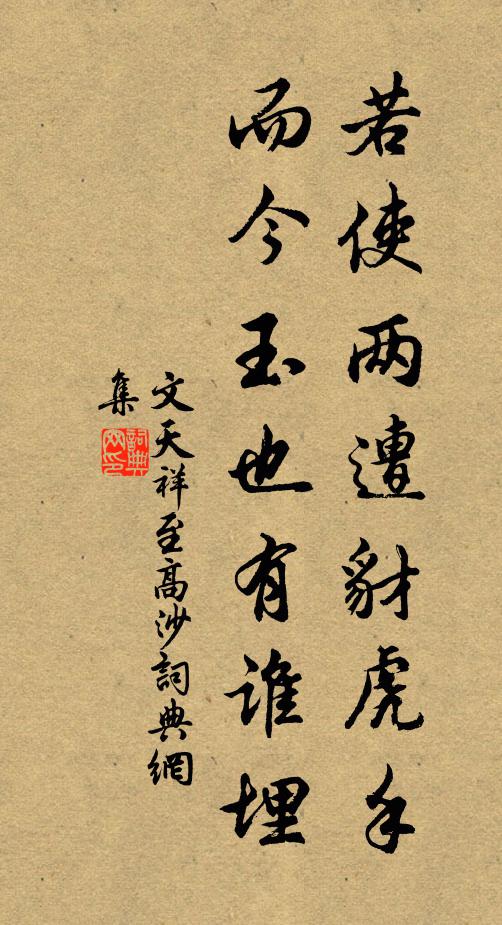 若使两遭豺虎手
而今玉也有谁埋
文天祥至高沙詞典網
集
詞典
网印